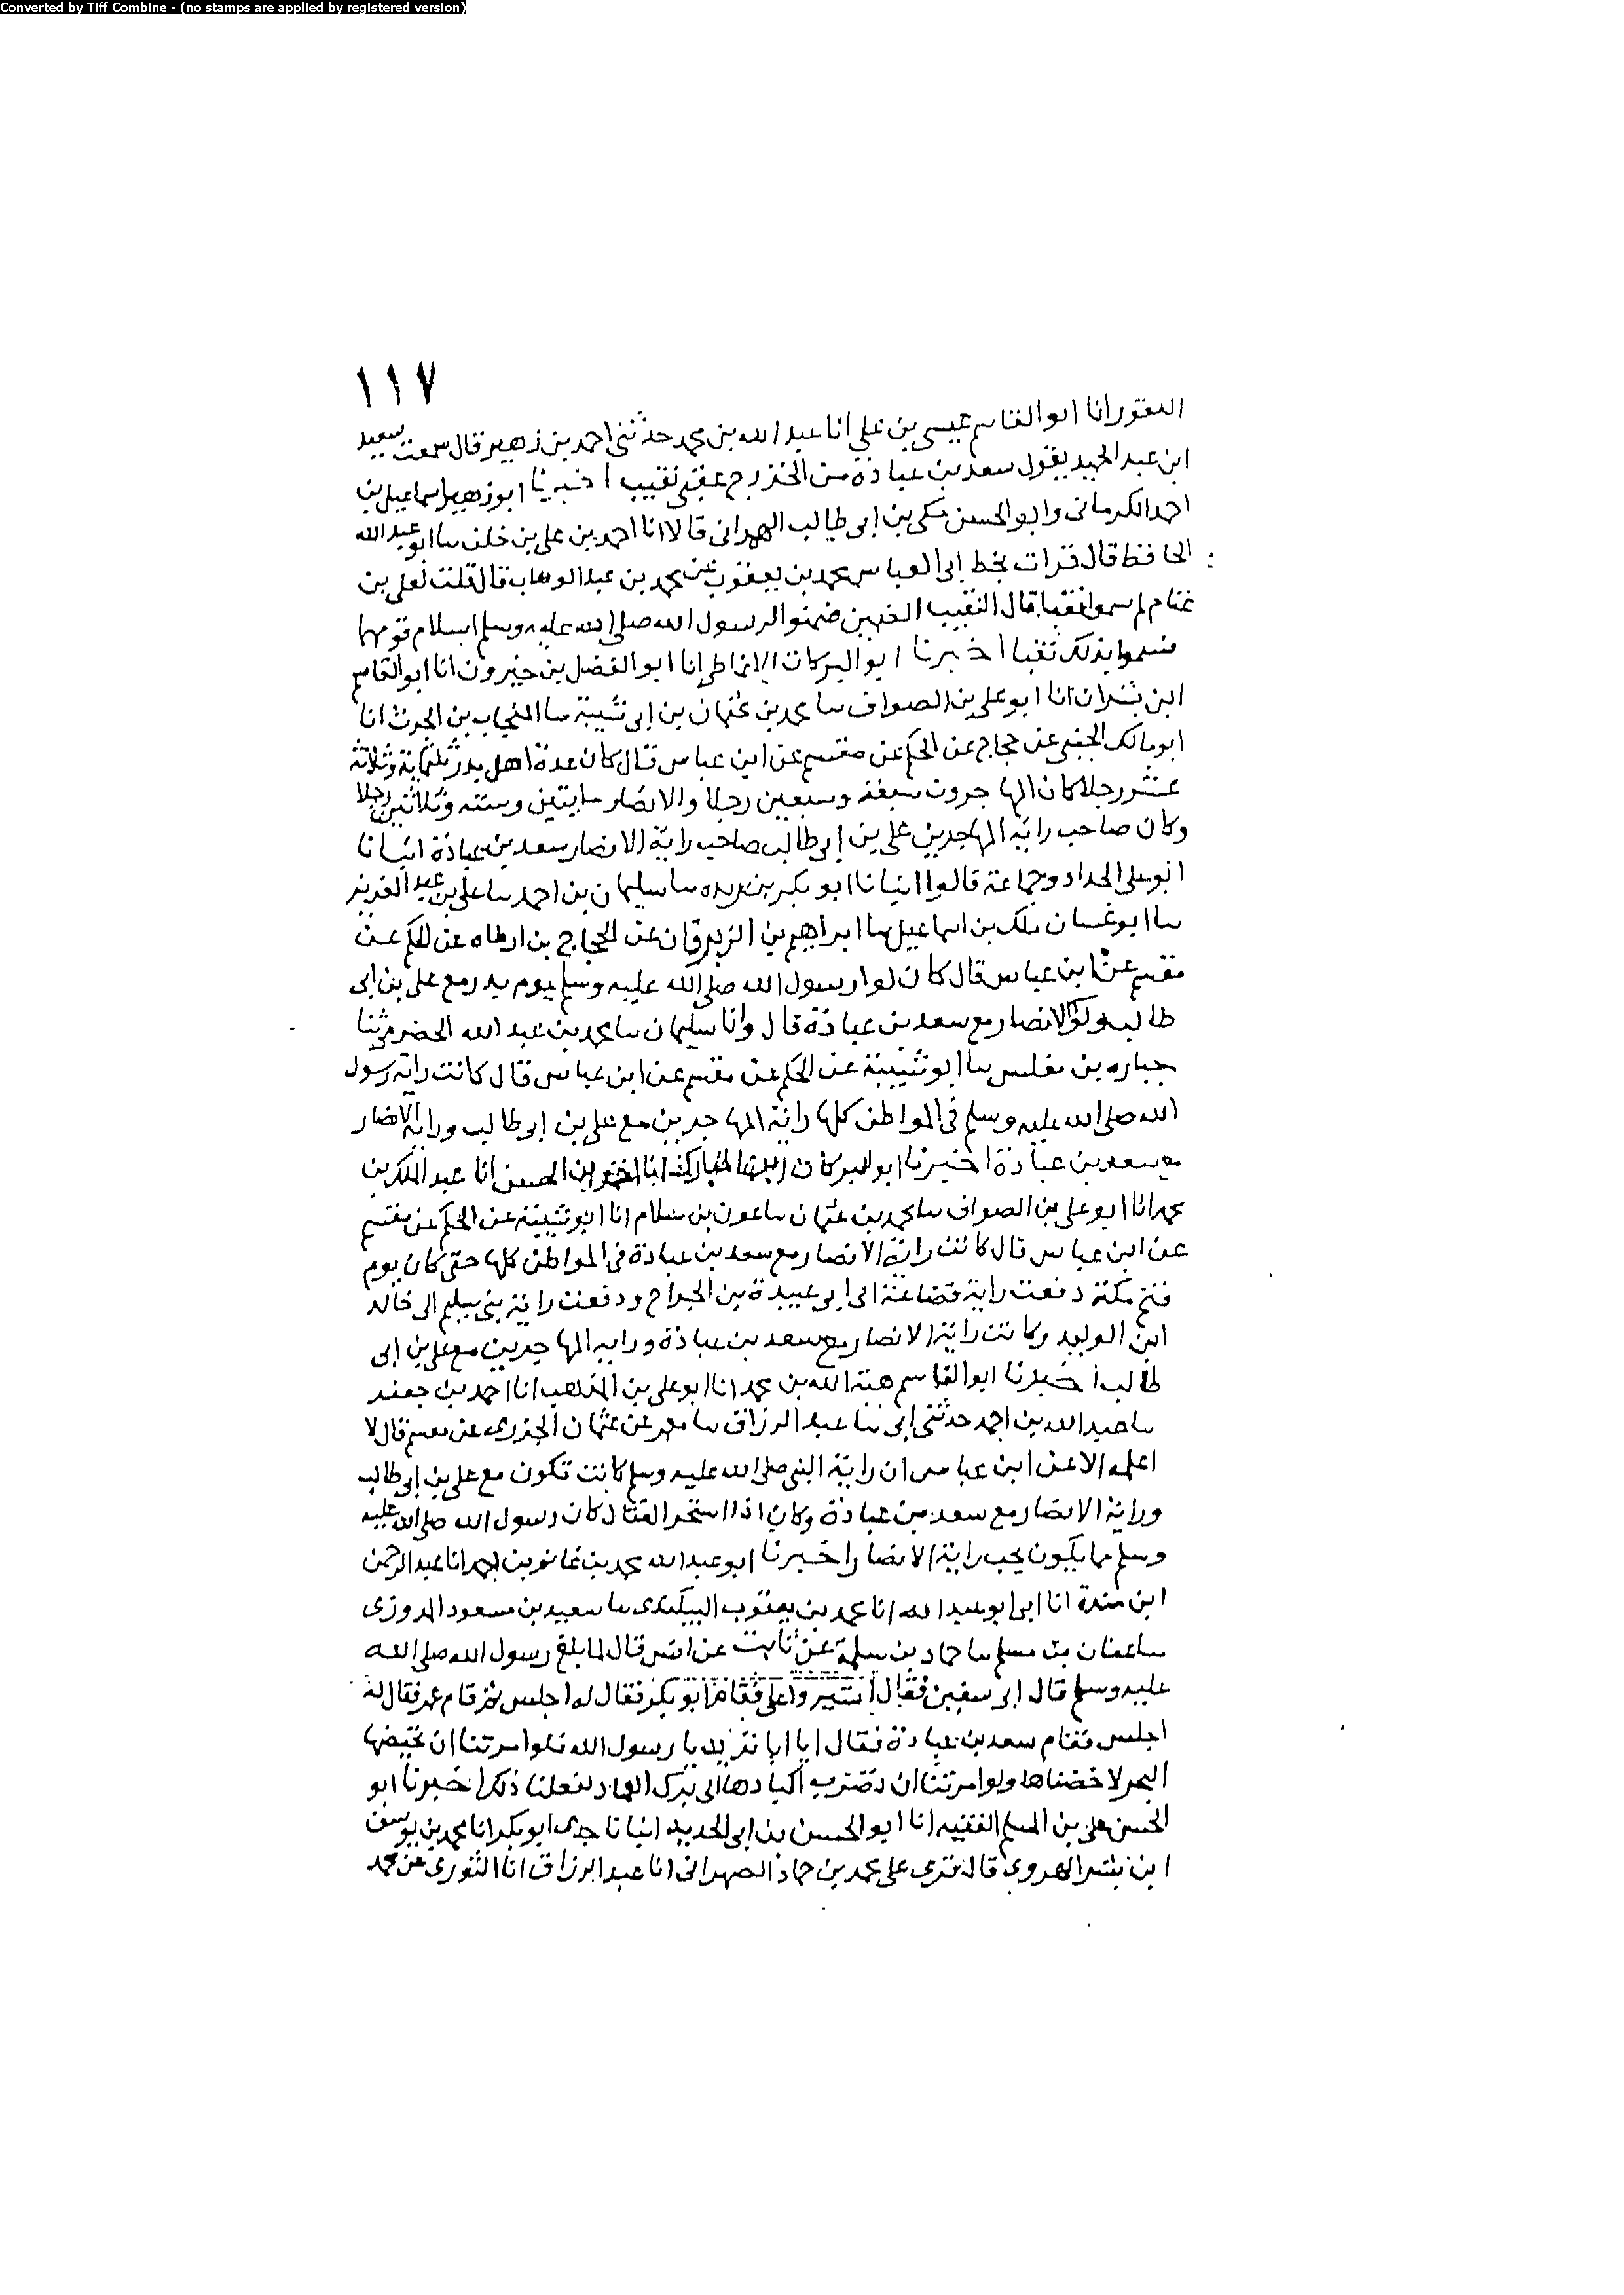 Converted by Tiff Combine - (no stamps are applied by registered version)
١١٧
النقور انا ابو القاسم عيسى بن علي انا عبد الله بن محمد حدثني احمد بن زهير قال سمعت سعيد
ابن عبد الحميد يقول سعد بن عبادة من الخزرج عقبي نقيب اخبرنا ابو زهير اسماعيل بن
احمد الكرماني وابو الحسن مكي بن ابي طالب الهمداني قالا انا احمد بن علي بن خلف سا ابو عبد الله
الحافظ قال قرات بخط ابي العباس محمد بن يعقوب عن محمد بن عبد الوهاب قال قلت لعلي بن
غنام لم سموا نقبا قال النقيب الضمين ضمنوا لرسول الله صلى الله عليه وسلم اسلام قومهم
فسموا بذلك نقبا اخبرنا ابو البركات الانماطي انا ابو الفضل بن خيرون انا ابو القاسم
ابن بشران انا ابو علي بن الصواف سا محمد بن عثمان بن ابي شيبة سا المنجاب بن الحرث انا
ابو مالك الجنبي عن حجاج عن الحكم عن مقسم عن ابن عباس قال كان عدة اهل بدر ثلثماية وثلاثة
عشر رجلا كان المهاجرون سبعة وسبعين رجلا والانصار مايتين وستة وثلاثين رجلا
وكان صاحب راية المهاجرين علي بن ابي طالب صاحب راية الانصار سعد بن عبادة انبانا
ابو علي الحداد وجماعة قالوا انبانا ابو بكر بن ريده سا سليمان بن احمد سا علي بن عبد العزيز
سا ابو غسان ملك بن اسماعيل سا ابراهيم بن الزبرقان عن الحجاج بن ارطاه عن الحكم عن
مقسم عن ابن عباس قال كان لوا رسول الله صلى الله عليه وسلم يوم بدر مع علي بن ابي
طالب ولوا الانصار مع سعد بن عبادة قال وانا سليمان سا محمد بن عبد الله الحضرمي ثنا
جباره بن مغلس سا ابو شيبة عن الحكم عن مقسم عن ابن عباس قال كانت راية رسول
الله صلى الله عليه وسلم في المواطن كلها راية المهاجرين مع علي بن ابو طالب وراية الانصار
مع سعد بن عبادة اخبرنا ابو البركات بن المبارك انا احمد بن الحسن انا عبد الملك بن
محمد انا ابو علي بن الصواف سا محمد بن عثمان سا عون بن سلام انا ابو شيبة عن الحكم عن مقسم
عن ابن عباس قال كانت راية الانصار مع سعد بن عبادة في المواطن كلها حتى كان يوم
فتح مكة دفعت راية قضاعة الى ابي عبيدة بن الجراح ودفعت راية بني سليم الى خالد
ابن الوليد وكانت راية الانصار مع سعد بن عبادة ورايه المهاجرين مع علي بن ابي
طالب اخبرنا ابو القاسم هبة الله بن محمد انا ابو علي بن المذهب انا احمد بن جعفر
سا عبد الله بن احمد حدثني ابي ثنا عبد الرزاق سا معمر عن عثمان الجزري عن مقسم قال لا
اعلمه الا عن ابن عباس ان راية النبي صلى الله عليه وسلم كانت تكون مع علي بن ابي طالب
وراية الانصار مع سعد بن عبادة وكان اذا استحر القتال كان رسول الله صلى الله عليه
وسلم مما يكون تحت راية الانصار اخبرنا ابو عبد الله محمد بن غانم بن احمد انا عبد الرحمن
ابن مندة انا ابي ابو عبد الله انا محمد بن يعقوب البيكندي سا سعيد بن مسعود المروزي
سا عفان بن مسلم سا حماد بن سلمة عن ثابت عن انس قال لما بلغ رسول الله صلى الله
عليه وسلم قال ابي سفين فقال اشيروا علي فقام ابو بكر فقال له اجلس ثم قام عمر فقال له
اجلس فقام سعد بن عبادة فقال ايانا تريد يا رسول الله فلو امرتنا ان نخيضها
البحر لاخضناها ولو امرتنا ان نضرب اكبادها الى برك الغماد لفعلنا ذلك اخبرنا ابو
الحسن علي بن المسلم الفقيه انا ابو الحسن بن ابي الحديد انبانا جدي ابو بكر انا محمد بن يوسف
ابن بشر الهروي قال قرى على محمد بن حماد الطهراني انا عبد الرزاق انا الثوري عن محمد